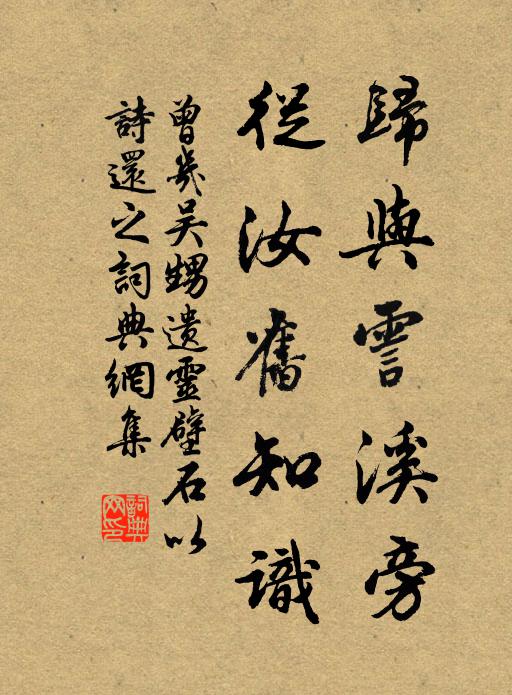 歸與霅溪旁
從汝舊知識
曾幾吳甥遺靈璧石以
詩還之詞典網集
詞典網印